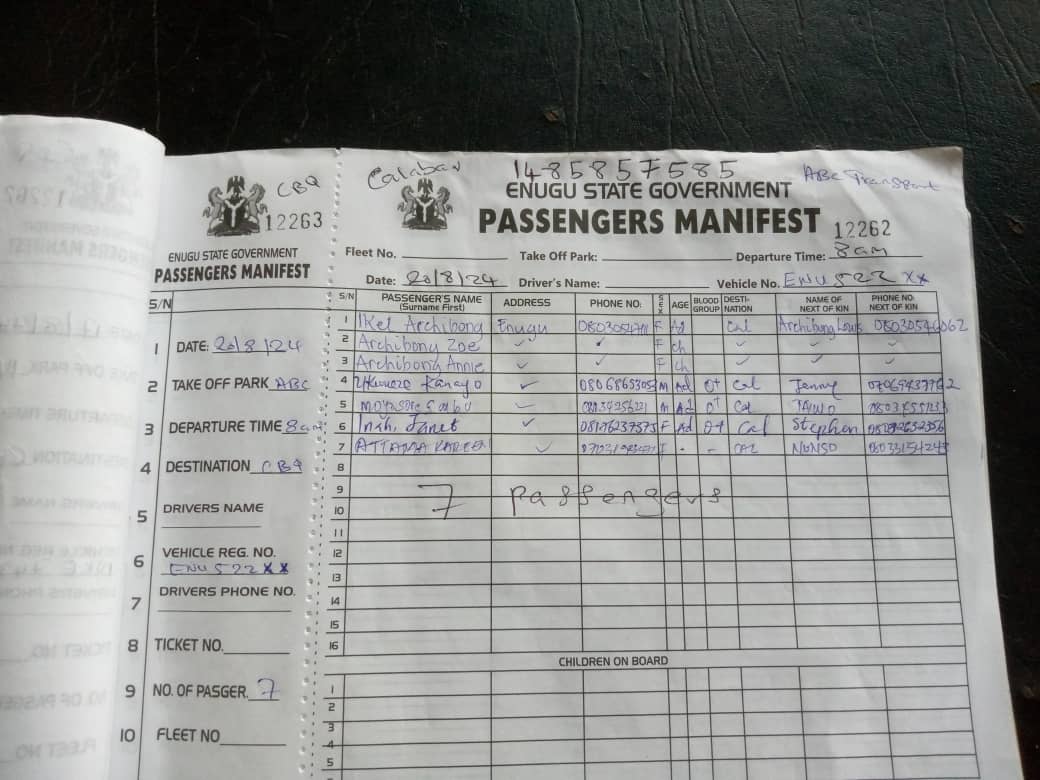 CBQ
12263
ENUGU STATE GOVERNMENT
PASSENGERS MANIFEST
S/N
1 DATE: 20/8/24
2 TAKE OFF PARK ABC
3 DEPARTURE TIME 8am
4 DESTINATION CBQ
5 DRIVERS NAME
6 VEHICLE REG. NO.
ENU 522 XX
7 DRIVERS PHONE NO.
8 TICKET NO.
9 NO. OF PASGER. 7
10 FLEET NO
Calabar 1485857585 ABC Transport
ENUGU STATE GOVERNMENT
PASSENGERS MANIFEST 12262
Fleet No. Take Off Park: Departure Time: 8am
Date: 20/8/24 Driver's Name: Vehicle No. ENU 522 XX
S/N PASSENGER'S NAME (Surname First) ADDRESS PHONE NO: SEX AGE BLOOD GROUP DESTI-NATION NAME OF NEXT OF KIN PHONE NO: NEXT OF KIN
1 Archibong Enugu F Ad Cal Archibong 08030546062
2 Archibong Zoe ✓ ✓ F ch ✓ ✓ ✓
3 Archibong Annie ✓ ✓ F ch ✓ ✓ ✓
4 Kanayo ✓ 0806865305 M Ad O+ Cal Jenny
5 ✓ M Ad O+ Cal TAIWO
6 Janet ✓ 08176237575 F Ad O+ Cal Stephen
7 ATTAMA ✓ - - CAL NONSO 08033154243
8
9
10
7 Passengers
11
12
13
14
15
16
CHILDREN ON BOARD
1
2
3
4
5